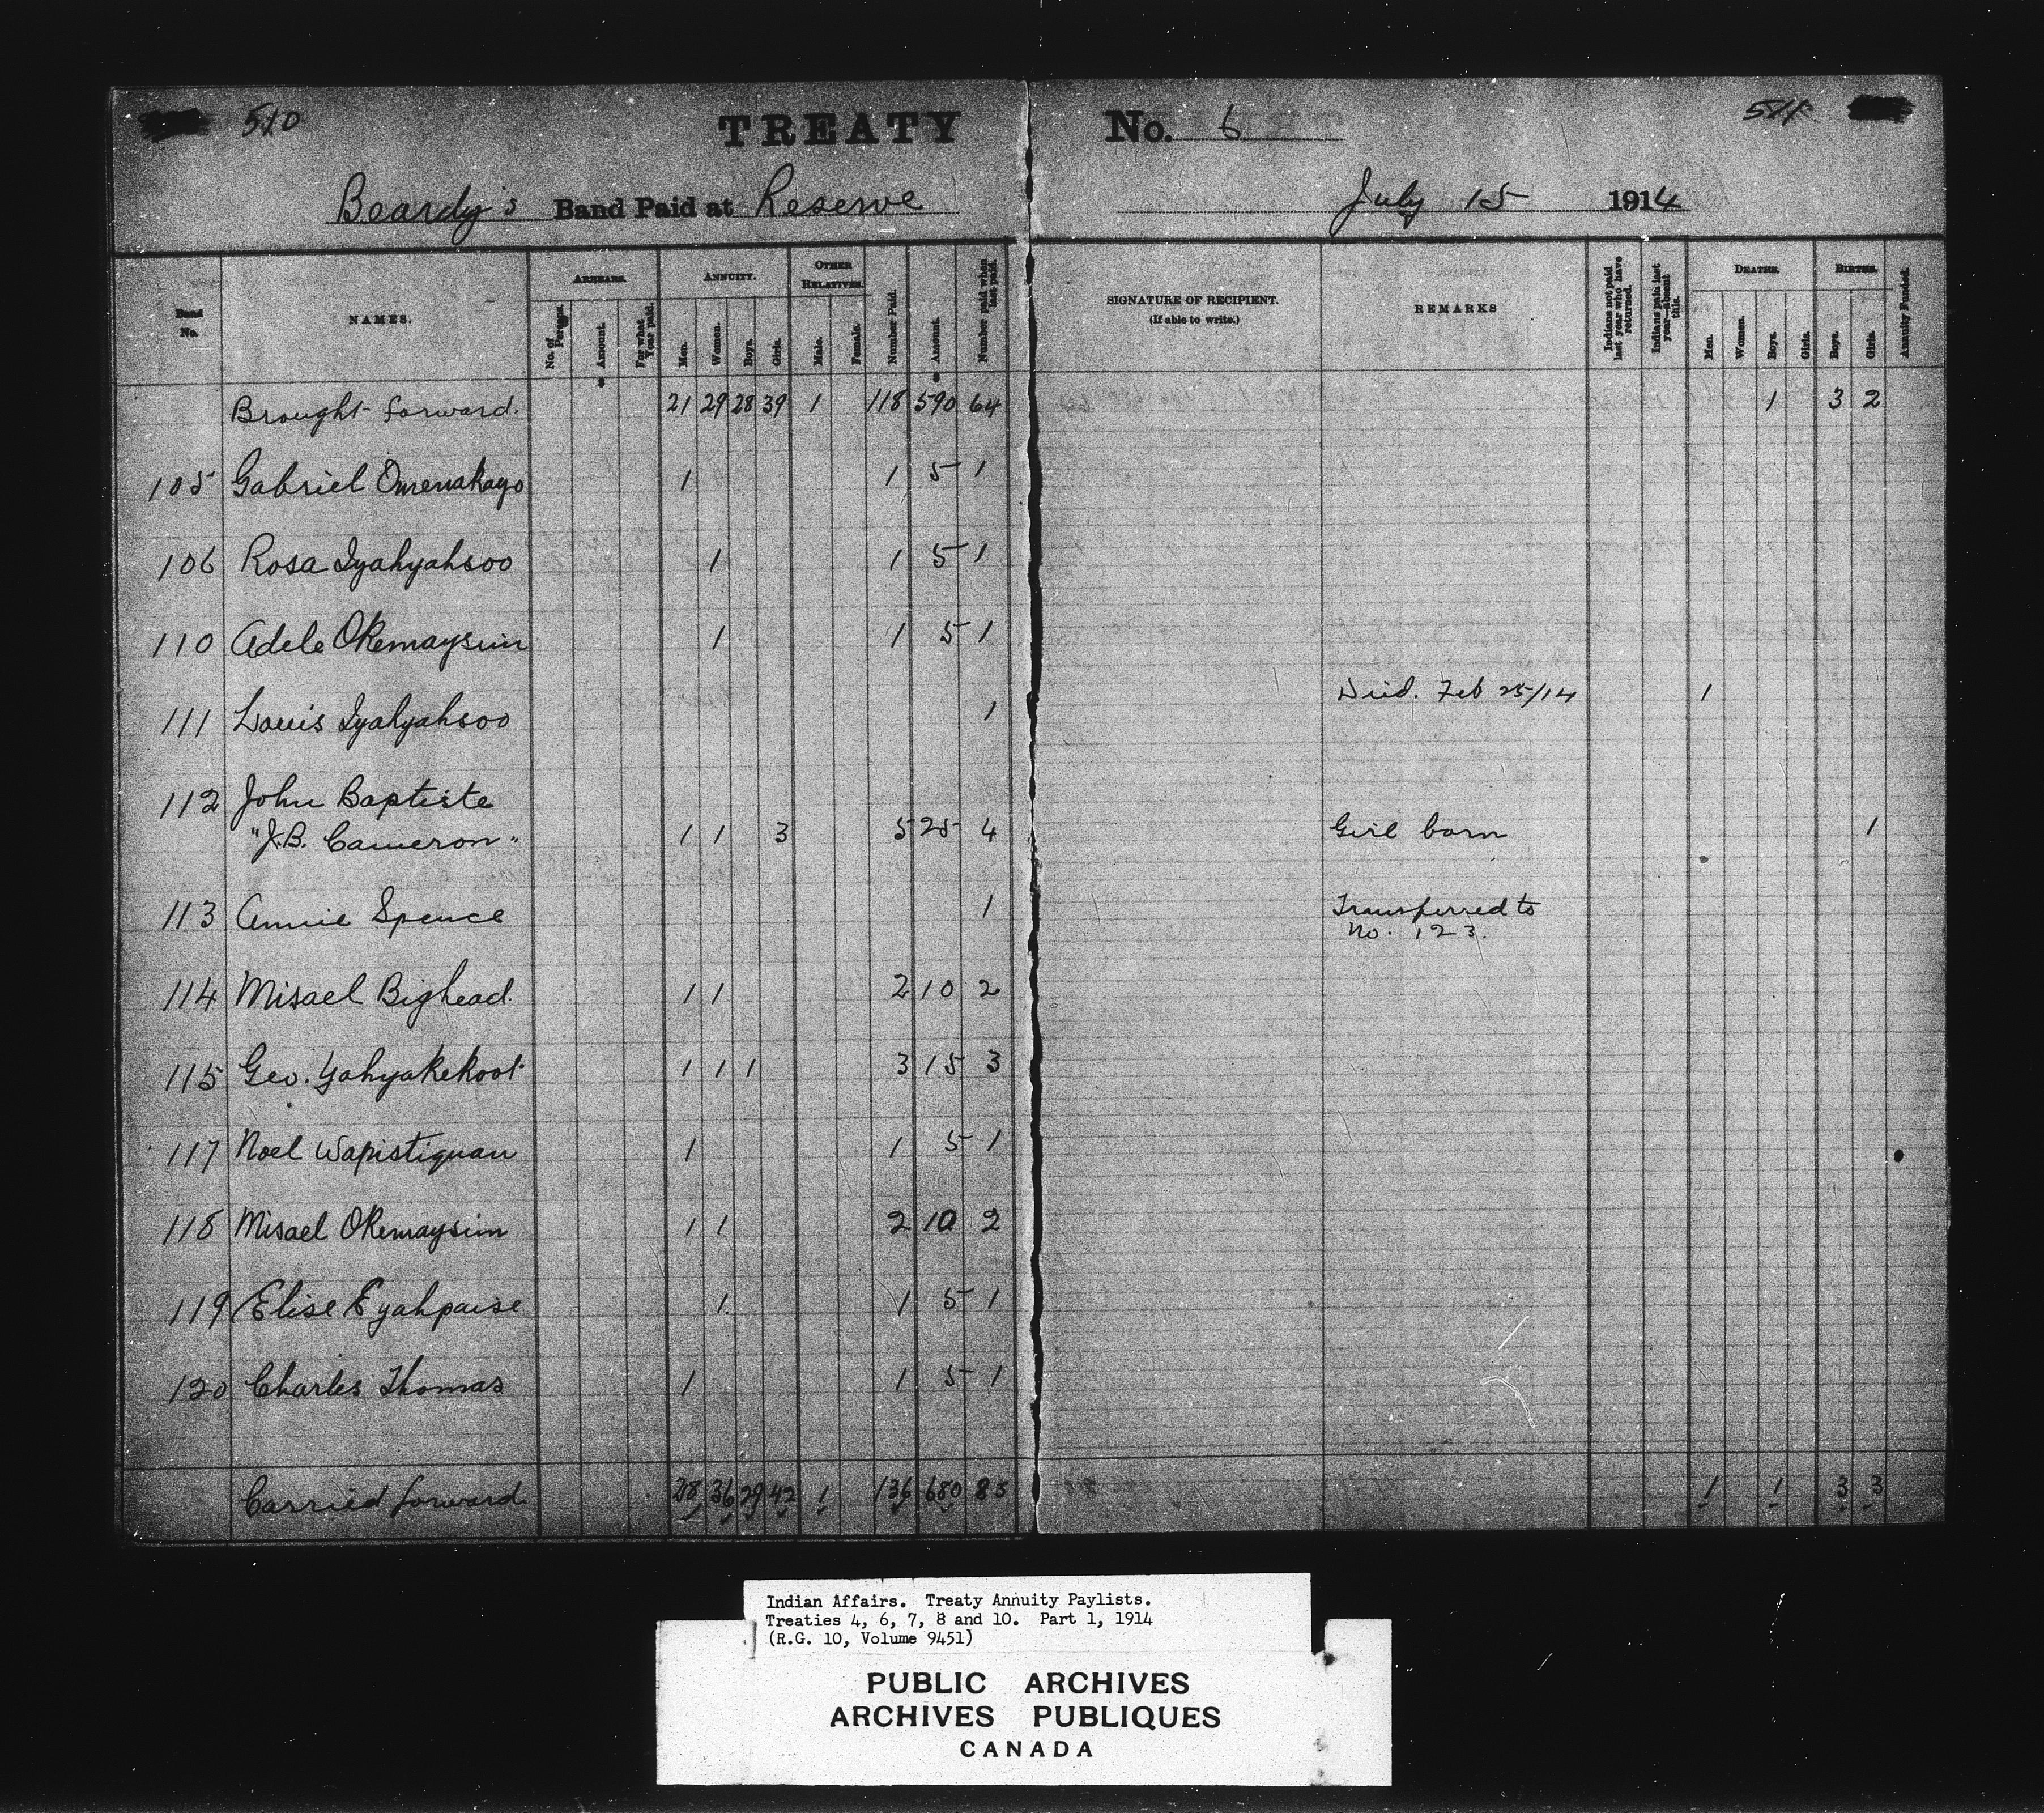 510
TREATY No. 6
511
Beardy's Band Paid at Reserve July 15 1914
Band No. NAMES. ARREARS. ANNUITY. OTHER RELATIVES. Number Paid. Amount. Number paid when last paid. SIGNATURE OF RECIPIENT. (If able to write.) REMARKS Indians not paid last year who have returned. Indians paid last year—absent this. DEATHS. BIRTHS. Annuity Funded.
No. of Persons. Amount. For what Year paid. Men. Women. Boys. Girls. Male. Female. Men. Women. Boys. Girls. Boys. Girls.
Brought forward. 21 29 28 39 1 118 590 64 1 3 2
105 Gabriel Omenakayo 1 1 5 1
106 Rosa Iyahyahsoo 1 1 5 1
110 Adele Okemaysim 1 1 5 1
111 Louis Iyahyahsoo 1 Died. Feb 25/14 1
112 John Baptiste
"J.B. Cameron" 1 1 3 5 25 4 Girl born 1
113 Annie Spence 1 Transferred to
No. 123.
114 Misael Bighead. 1 1 2 10 2
115 Geo. Yahyakekoot 1 1 1 3 15 3
117 Noel Wapistiquan 1 1 5 1
118 Misael Okemaysim 1 1 2 10 2
119 Elise Eyahpaise 1 1 5 1
120 Charles Thomas 1 1 5 1
Carried forward 28 36 29 42 1 136 680 83 1 1 3 3
Indian Affairs. Treaty Annuity Paylists.
Treaties 4, 6, 7, 8 and 10. Part 1, 1914
(R.G. 10, Volume 9451)
PUBLIC ARCHIVES
ARCHIVES PUBLIQUES
CANADA